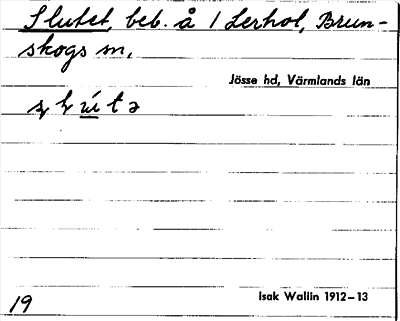 Slutet, beb. å 1 Lerhol, Brun-
skogs sn.
Jösse hd, Värmlands län
Isak Wallin 1912–13
19